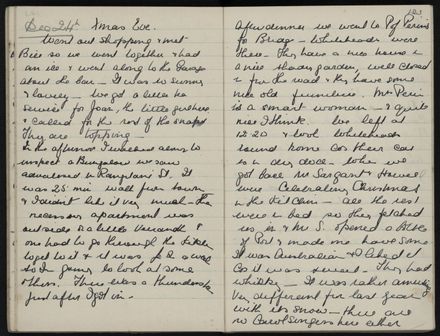 Dec 24th Xmas Eve.
Went out shopping & met
Bice so we went together & had
an ice & went along to the Garage
about the car — It was so sunny
& lovely — We got a little tea
service for Joan, the little girl here
& called for the rest of the snaps
They are topping —
In the afternoon I walked along to
inspect a Bungalow we saw
advertised in St. It
was 25 min walk from town
& I didn't like it very much — the
necessary apartment was
outside on a little Verandah &
one had to go through the kitchen
to get to it & it was so
so I going to look at some
others. There was a thunderstorm
just after I got in.
After dinner we went to Prof
to Bridge — Whiteheads were
there. They have a nice house in
a nice shady garden, well closed
in from the road & they have some
nice old furniture. Mrs
is a smart woman — & quite
nice I think. We left at
12.20 & took Whiteheads
round home cos their car
is in dry dock. When we
got back Mr Sargant & Howell
were Celebrating Christmas
in the Kitchen — all the rest
were in bed so they fetched
us in & Mr S. opened a Bottle
of Port & made me have some
It was Australian & I liked it
cos it was sweet. They had
whisky — It was rather amusing
Very different from last year
with its snow — there are
no Carol singers here either